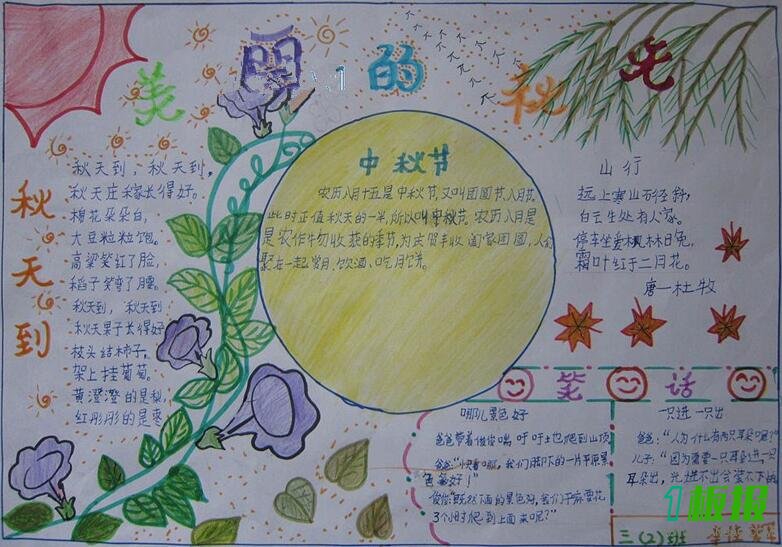 美丽的秋天
秋天到
秋天到，秋天到，
秋天庄稼长得好。
棉花朵朵白，
大豆粒粒饱。
高粱笑红了脸，
稻子笑弯了腰。
秋天到，秋天到
秋天果子长得好
枝头结柿子。
架上挂葡萄。
黄澄澄的是梨，
红彤彤的是枣
中秋节
农历八月十五是中秋节，又叫团圆节、八月节。
此时正值秋天的一半，所以叫中秋节。农历八月是
是农作物收获的季节，为庆贺丰收，阖家团圆，人们
聚在一起赏月、饮酒、吃月饼。
山行
远上寒山石径斜，
白云生处有人家。
停车坐爱枫林晚，
霜叶红于二月花。
唐一杜牧
笑话
哪儿景色好
爸爸带着俊俊喘吁吁地爬到山顶
爸爸“快看哪，我们脚下的一片平原景
色多好！”
俊俊“既然下面的景色好，我们干嘛要花
3个小时爬到上面来呢？”
一只进一只出
爸爸：“人为什么有两只耳朵呢？”
儿子：“因为需要一只耳朵进一只
耳朵出，光进不出会装不下的
三（2）班
1板报